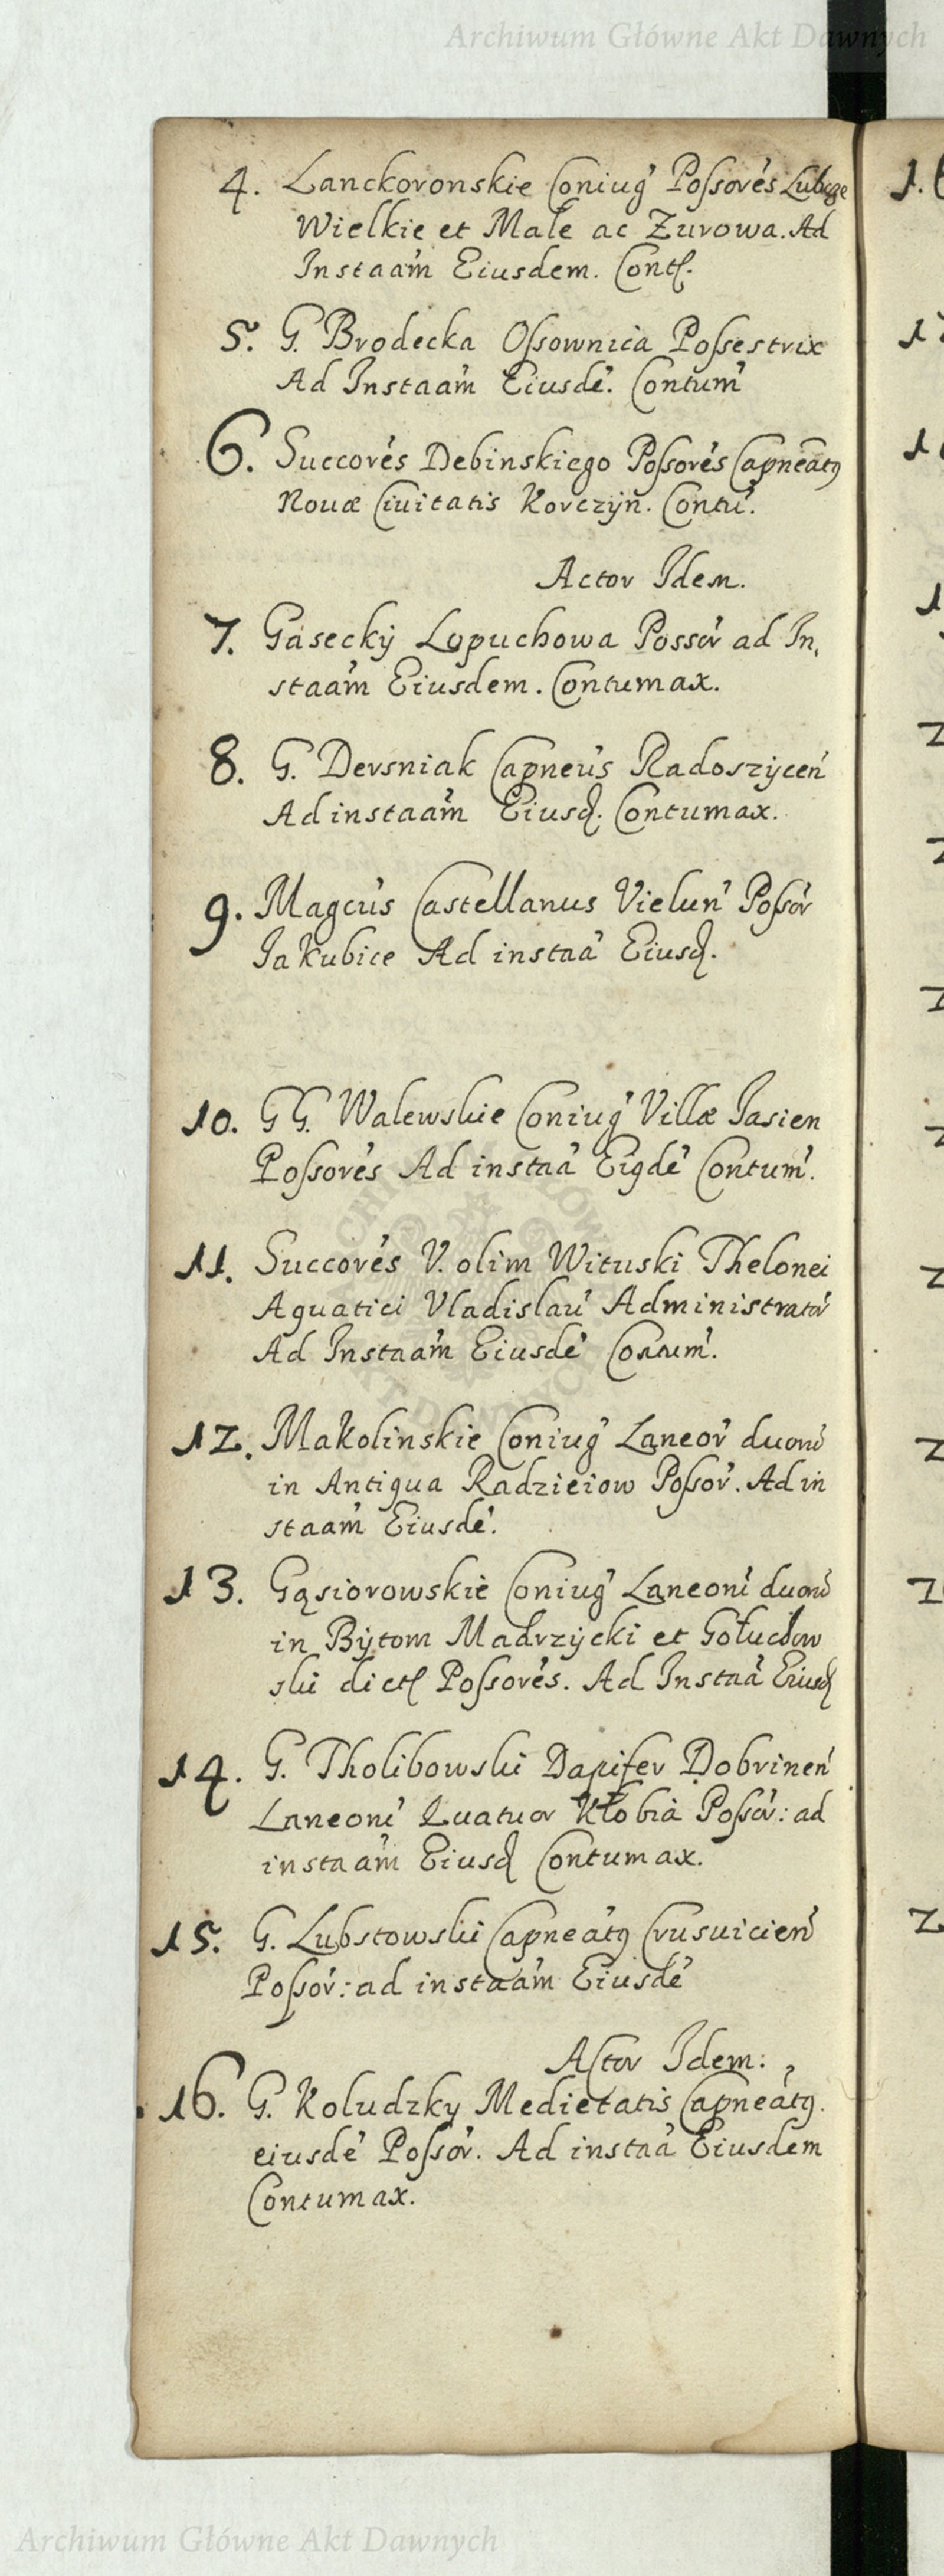 Archiwum Główne Akt Dawnych
4. Lanckoronskie Coniug' Possores Lubcze
Wielkie et Małe ac Zurowa. Ad
Instaam Eiusdem. Cont.
5. G. Brodecka Ossownica Possestrix
Ad Instaam Eiusde'. Contum'
6. Succores Debinskiego Possores Capneatq
Nouæ Ciuitatis Korczyn. Contu'.
Actor Idem.
7. Gasecky Lopuchowa Possor ad In,
staam Eiusdem. Contumax.
8. G. Dersniak Capneus Radoszycen'
Ad instaam Eiusd. Contumax.
9. Magcus Castellanus Vielun' Possor
Jakubice Ad instaa' Eiusd.
10. G G. Walewskie Coniug' Villæ Jasien
Possores Ad instaa' Eigde' Contum'.
11. Succores V. olim Wituski Thelonei
Aquatici Vladislau' Administrator
Ad Instaam Eiusde' Contum'.
12. Makolinskie Coniug' Laneor' duoru'
in Antiqua Radzieiow Possor'. Ad in
staam Eiusde'.
13. Gąsiorowskie Coniug' Laneoru' duoru'
in Bytom Madrzycki et Gołuchow
ski dict Possores. Ad Instaa' Eiusd
14. G. Tholibowski Dapifer Dobrinen'
Laneoru' Quatuor Kłobia Possor: ad
instaam Eiusd Contumax.
15. G. Lubstowski Capneatq Crusuicien'
Possor: ad instaam Eiusde'
Actor Idem:
16. G. Koludzky Medietatis Capneatq.
eiusde' Possor. Ad instaa' Eiusdem
Contumax.
Archiwum Główne Akt Dawnych